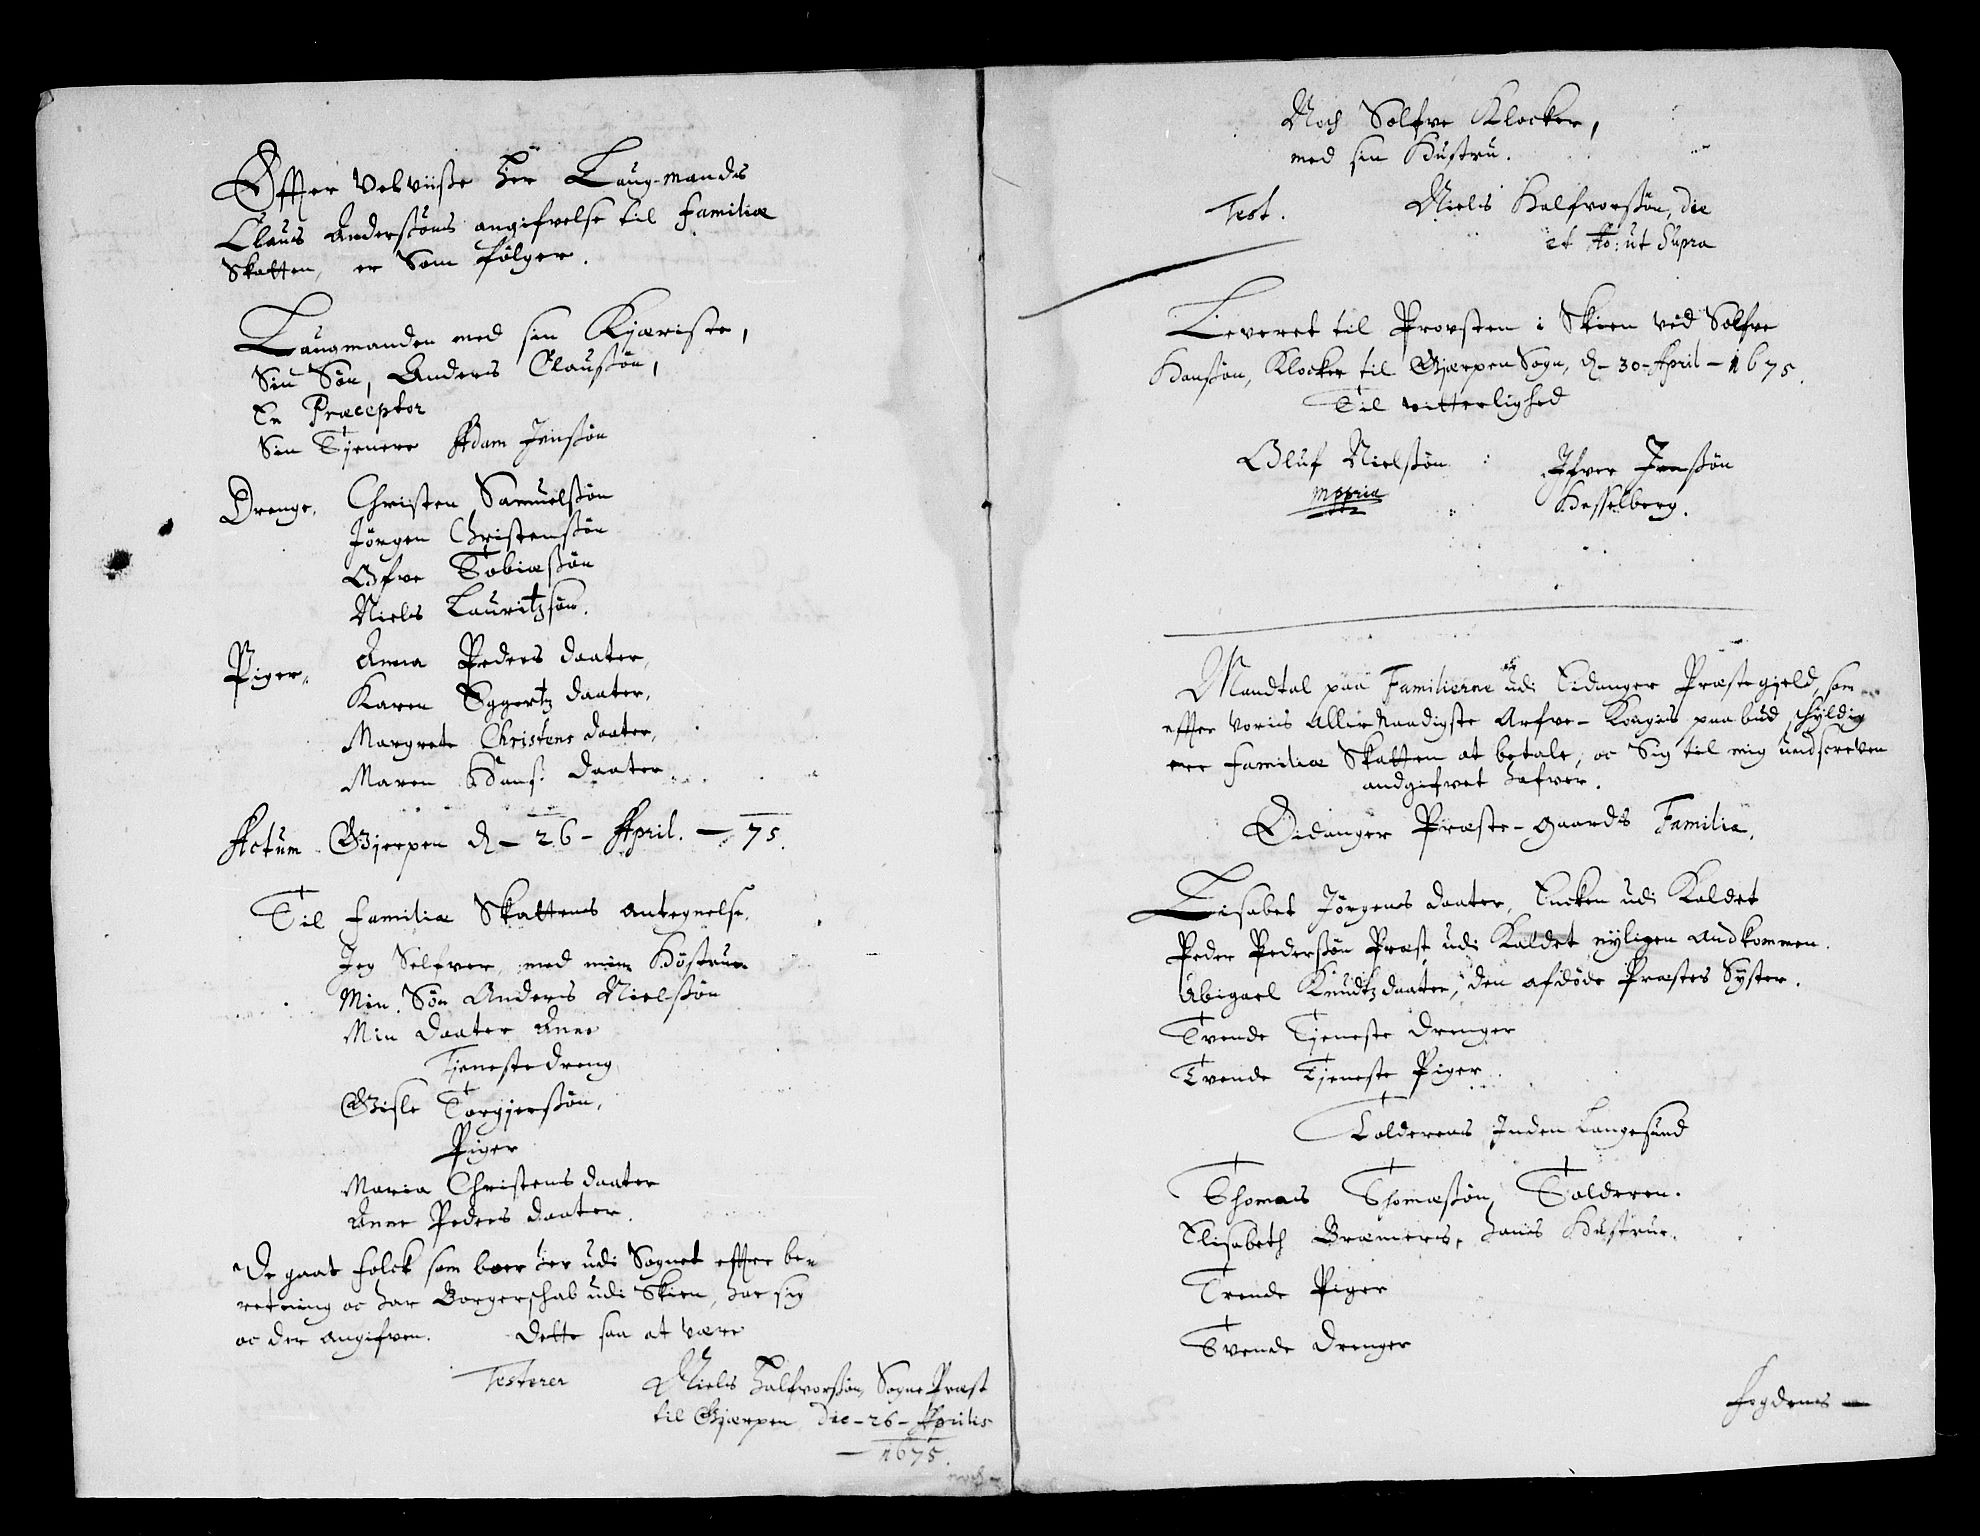 Effter Velviise Her Laug-mands
Claus Anderssøns angifvelse til familiæ
Skatten, er Som følger.
Laugmanden med sin Kjæriste,
Sin Søn, Anders Claussøn,
En Præceptor
Sin Tjenere Adam Jenssøn
Drenge. Christen Samuelssøn
Jörgen Christenssøn
Ofve Tobiassøn
Niels Lauritzsøn.
Piger. Anna Peders daater,
Karen Eggertz daater,
Margrete Christens daater,
Maren Hans: daater
Actum Gjerpen d - 26 - April. - 75.
Til familiæ Skattens antegnelse.
Jeg Selfver, med min Høstrue
Min Søn Anders Nielssøn
Min daater Anne
Tjenestedreng
Gisle Torgjerssøn,
Piger
Maria Christens daater
Anne Peders daater.
De gaat folck som boer her udi Sognet effter be-
retning oc har Borgerschab udi Skien, har sig
oc der angifven. Dette saa at være
Testerer Niels Halfvorssøn, Sogne Præst
til Gjærpen, die - 26 - Aprilis
- 1675.
noch -
Noch Solfve Klocker,
med sin Hustru.
Test. Niels Halfvorssøn, die
et Ao: ut Supra
Leveret til Provsten i Skien ved Solfve
Hanssøn, Klocker til Gjærpen Sogn, d - 30 - April - 1675.
Til vitterlighed
Oluf Nielssøn Ifver Jenssøn
mppria Hesselberg.
Mandtal paa Familierne udi Eidanger Præstegjeld, som
effter voris Allernaadigste Arfve- Kongis paabud schyldig
ere familiæ Skatten at betale, oc Sig til mig undscreven
andgifvet hafver.
Eidanger Præste-gaards Familie.
Lisabet Jørgens daater, Encken udi Kaldet
Peder Pederssøn Præst udi Kaldet nyligen andkommen.
Abigael Knudtz daater, den afdøde Præstes Syster.
Tvende Tjeneste drenger
Tvende Tjeneste Piger
Tolderens Inden Langesund
Thomas Thomassøn Tolderen.
Elisabeth Bræmers, hans Hustrue.
Trende Piger
Tvende Drenger
fogdens -